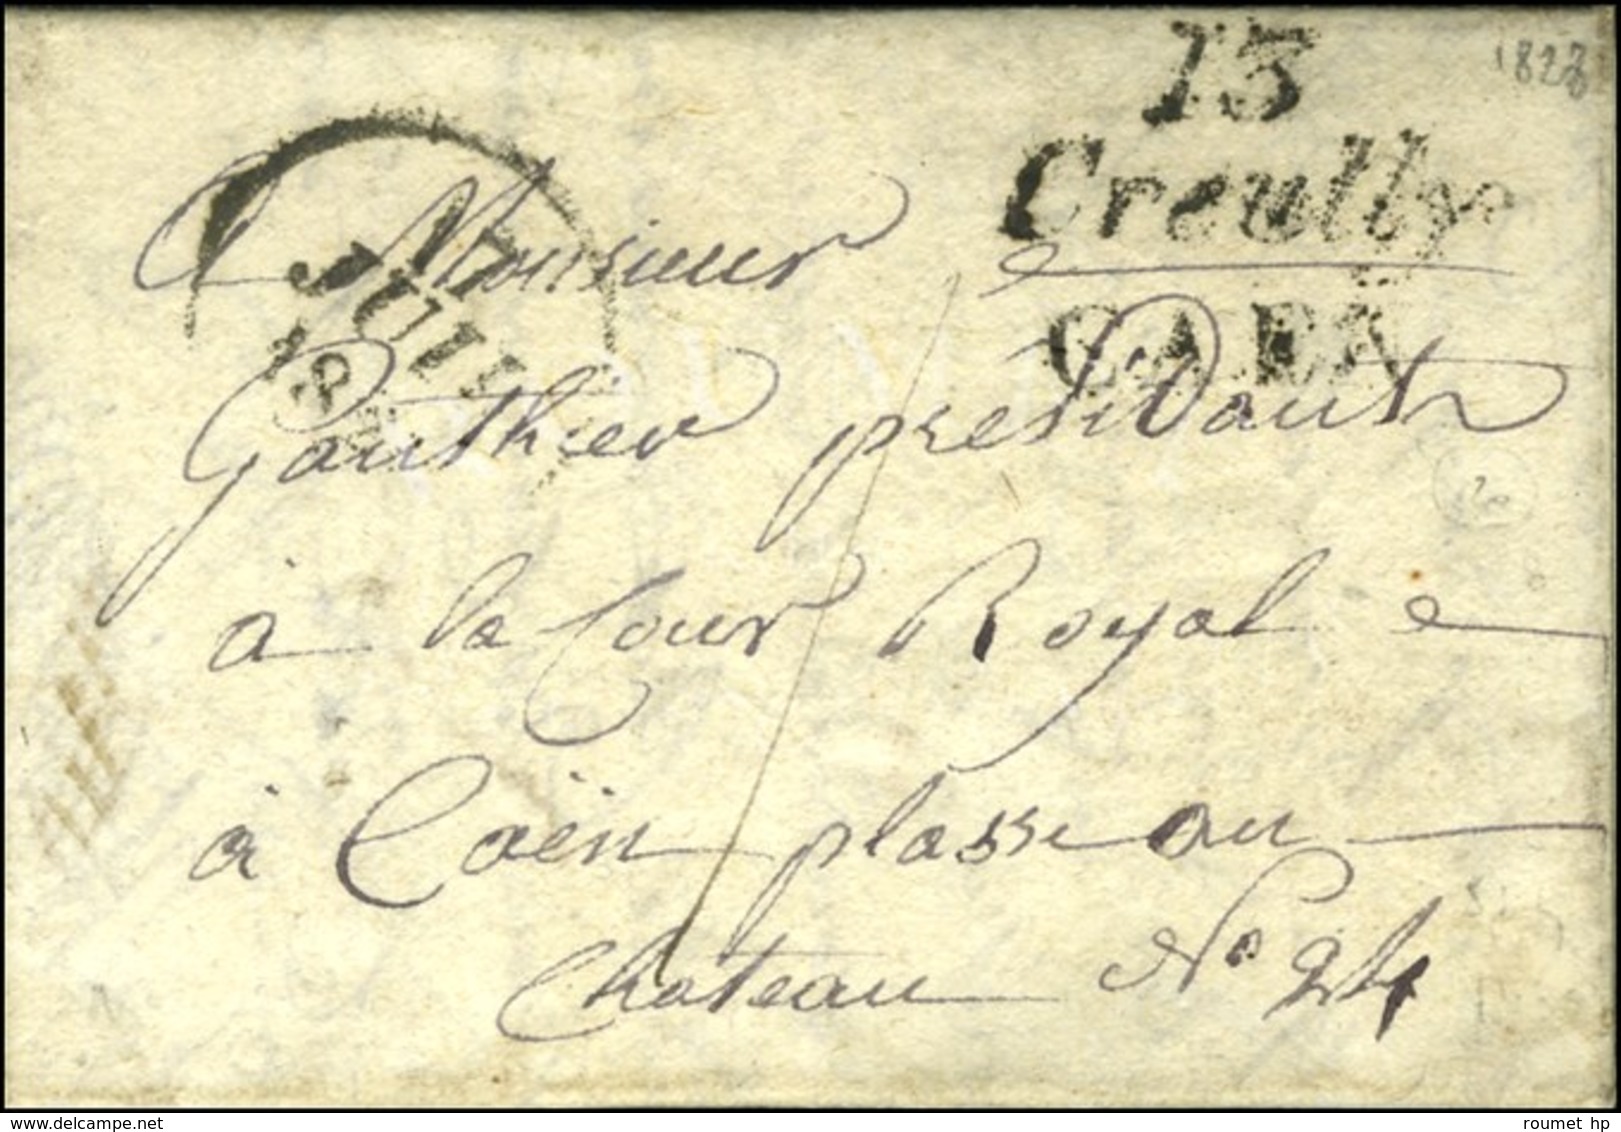 13
Creully
CAEN
1828
JUIL
A Monsieur
Gauthier presidant
à la Cour Royal
à Caën plasse au
Chateau N° 24
roumet hp